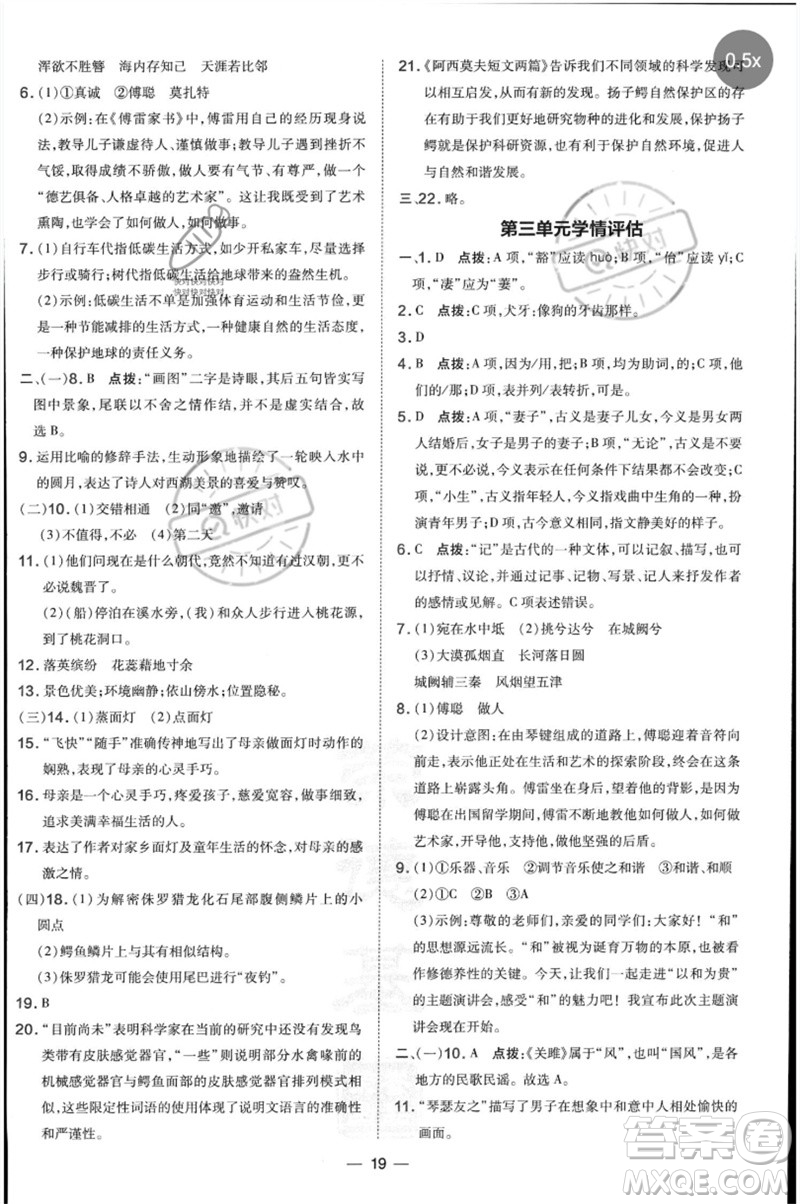 浑欲不胜簪　海内存知己　天涯若比邻
6. (1)①真诚　②傅聪　莫扎特
(2)示例：在《傅雷家书》中，傅雷用自己的经历现身说
法，教导儿子谦虚待人、谨慎做事；教导儿子遇到挫折不
气馁，取得成绩不骄傲，做人要有气节、有尊严，做一个
“德艺俱备、人格卓越的艺术家”。这让我们受到了艺术
熏陶，也知道应如何做人、如何做事。
7. (1)自行车代指低碳生活方式，如少开私家车，尽量选择
步行或骑行；树代指低碳生活给地球带来的盎然生机。
(2)示例：低碳生活不是加强体育运动和生活节俭，更
是一种节能减排的生活方式，一种健康自然的生活态度，
一种保护地球的责任义务。
二、(一)8. B　点拨：“画图”二字是诗眼，其后五句皆实写
图中景象，尾联以不舍之情作结，并不是虚实结合。故
选 B。
9. 运用比喻的修辞手法，生动形象地描绘了一轮映入水中
的圆月，表达了诗人对西湖美景的喜爱与赞叹。
(二)10. (1)交错相通　(2)同“邀”，邀请
(3)不值得，不必　(4)第二天
11. (1)他们问现在是什么朝代，竟然不知道有过汉朝，更不
必说魏晋了。
(2)(船)停泊在溪水旁，(我)和众人步行并进桃花源，
到了桃花洞口。
12. 落英缤纷　花蕊藉地寸余
13. 景色优美；环境幽静；依山傍水；位置隐蔽。
(三)14. (1)蒸面灯　(2)点面灯
15. “飞快”“随手”准确传神地写出了母亲做面灯时动作的
娴熟，表现了母亲的心灵手巧。
16. 母亲是一个心灵手巧，疼爱孩子，慈爱宽容，做事细致，
追求美满幸福生活的人。
17. 表达了作者对家乡面灯及童年生活的怀念，对母亲的感
激之情。
(四)18. (1)为解密侏罗猎龙化石尾部腹侧鳞片上的小
圆点
(2)鳄鱼鳞片上也有相似结构。
(3)侏罗猎龙可能使用尾巴进行“夜钓”。
19. B
20. “目前尚未”表明科学家在当前的研究中还没有发现鸟
类带有皮肤感觉器官，“一些”则说明部分水禽喙前部的
机械感觉器官与鳄鱼面部的皮肤感觉器官排列模式相
似，这些限定性词语的使用体现了说明文语言的准确性
和严谨性。
21. 《阿西莫夫短文两篇》告诉我们不同领域的科学发现可
以相互启发，从而有了新的发现。扬子鳄自然保护区的存
在有助于我们更好地研究物种的进化和发展，保护扬子
鳄就是保护科研资源，也有利于保护自然环境，促进人
与自然和谐发展。
三、22. 略。
第三单元学情评估
一、1. D　点拨：A 项，“豁”应读 huò；B 项，“怡”应读 yí；C
项，“凄”应为“萋”。
2. C　点拨：C 项，犬牙：像狗的牙齿那样。
3. D
4. B　点拨：A 项，因为/用，把；B 项，均为助词，的；C 项，
才/就；D 项，表并列/表转折。
5. D　点拨：A 项，“妻子”，古义是妻子儿女，今义是男女两
人结婚后，女子是男子的妻子；B 项，“无论”，古义为不要
说，更不必说，今义表示在任何条件下结果都不会改变；C
项，“小生”，古义指年轻人，今义指戏曲中生角的一种，扮
演青年男子；D 项，古今义都指文静美好的样子。
6. C　点拨：“记”是古代的一种文体，可以记叙、描写，也可
以抒情、议论，并通过记事、记物、写景、记人来抒发作者
的感情或见解。C 项表述错误。
7. (1)宛在水中坻　(2)挑兮达兮　在城阙兮
(3)大漠孤烟直　长河落日圆
城阙辅三秦　风烟望五津
8. (1)傅聪　做人
(2)设计意图：在由琴键组成的道路上，傅聪追着音符前
行，表示他正处在生活和艺术的探索阶段，终会在这条
道路上崭露头角。傅雷深情地望着他的背影，是指在
傅聪在出国留学期间，傅雷不断地教他如何做人、如何做
艺术家，并开导他、支持他，做他的坚强后盾。
9. (1)①乐器、音乐　②调节音乐使之和谐　③和谐、和顺
(2)①C　②B　③A
(3)示例：尊敬的老师们，亲爱的同学们：大家好！“和”
的思想源远流长。“和”是诞育万物的本原，也被认为是
作修德养性的关键。今天，让我们走进“以和为贵”
的主题演讲会，感受“和”的无穷魅力！我宣布，此次主题演
讲会现在开始。
二、(一)10. A　点拨：《关雎》属于“风”，也叫“国风”，是各
地方的民歌民谣。故选 A。
11. “琴瑟友之”描写了男子在想象中和意中人相处愉快的
画面。
19
0.5x
快对
快对
答案圈
MXQE.COM